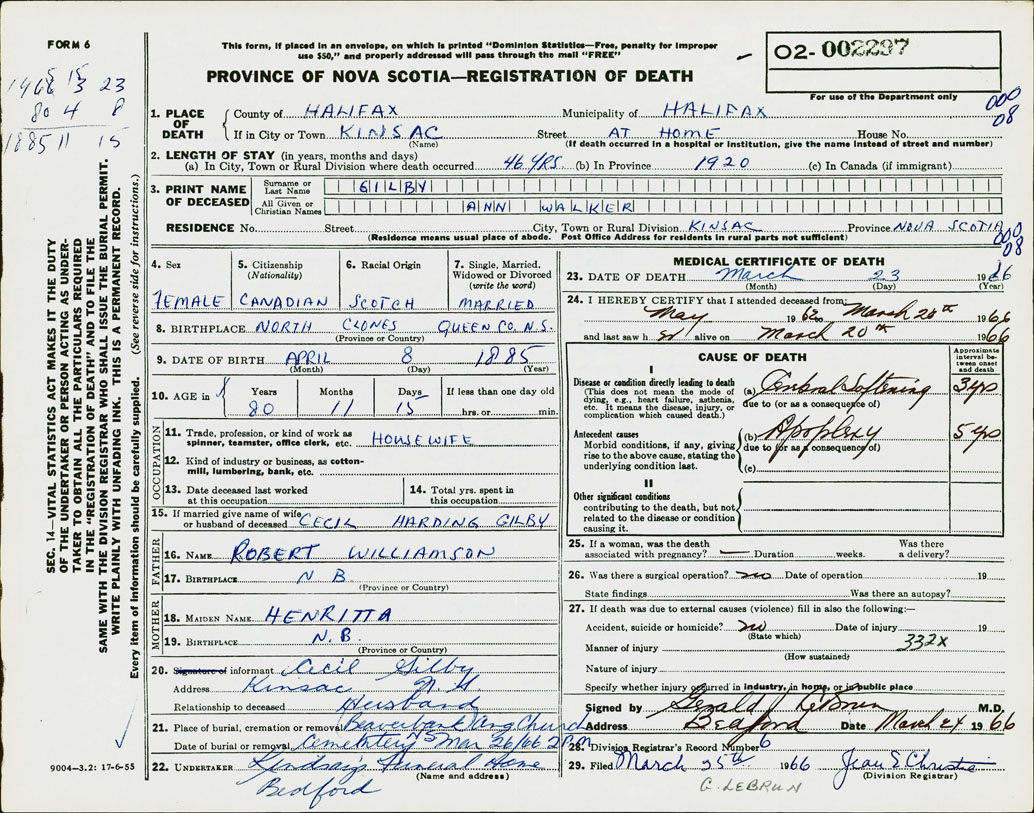 FORM 6
This form, if placed in an envelope, on which is printed "Dominion Statistics—Free, penalty for improper
use $50," and properly addressed will pass through the mail "FREE"
PROVINCE OF NOVA SCOTIA—REGISTRATION OF DEATH
02-002297
For use of the Department only
000
08
80 4 8
1885 11 15
1. PLACE OF DEATH
County of HALIFAX Municipality of HALIFAX
If in City or Town KINSAC Street AT HOME House No.
(Name) (If death occurred in a hospital or institution, give the name instead of street and number)
2. LENGTH OF STAY (in years, months and days)
(a) In City, Town or Rural Division where death occurred 46 YRS. (b) In Province 1920 (c) In Canada (if immigrant)
3. PRINT NAME OF DECEASED
Surname or Last Name GILBY
All Given or Christian Names ANN WALKER
RESIDENCE No. Street City, Town or Rural Division KINSAC Province NOVA SCOTIA
(Residence means usual place of abode. Post Office Address for residents in rural parts not sufficient)
000
08
4. Sex
FEMALE
5. Citizenship
(Nationality)
CANADIAN
6. Racial Origin
SCOTCH
7. Single, Married,
Widowed or Divorced
(write the word)
MARRIED
8. BIRTHPLACE NORTH CLONES QUEEN CO. N.S.
(Province or Country)
9. DATE OF BIRTH APRIL 8 1885
(Month) (Day) (Year)
10. AGE in
Years Months Days If less than one day
80 11 15 hrs. or min.
OCCUPATION
11. Trade, profession, or kind of work as
spinner, teamster, office clerk, etc. HOUSEWIFE
12. Kind of industry or business, as cotton-
mill, lumbering, bank, etc.
13. Date deceased last worked
at this occupation
14. Total yrs. spent in
this occupation
15. If married give name of wife
or husband of deceased CECIL HARDING GILBY
FATHER
16. NAME ROBERT WILLIAMSON
17. BIRTHPLACE N B
(Province or Country)
MOTHER
18. MAIDEN NAME HENRITTA
19. BIRTHPLACE N.B.
(Province or Country)
20. Signature of informant Cecil Gilby
Address Kinsac N.S
Relationship to deceased Husband
21. Place of burial, cremation or removal Beaverbank Ang Church
Date of burial or removal Cemetery NS Mar 26/66 2 PM
22. UNDERTAKER Lindsay's Funeral Home
(Name and address)
Bedford
MEDICAL CERTIFICATE OF DEATH
23. DATE OF DEATH March 23 1966
(Month) (Day) (Year)
24. I HEREBY CERTIFY that I attended deceased from
May 19 to March 20th 1966
and last saw her alive on March 20th 1966
CAUSE OF DEATH
Approximate
interval be-
tween onset
and death
I
Disease or condition directly leading to death
(This does not mean the mode of
dying, e.g., heart failure, asthenia,
etc. It means the disease, injury, or
complication which caused death.)
(a) Cerebral Softening 3 yrs
due to (or as a consequence of)
Antecedent causes
Morbid conditions, if any, giving
rise to the above cause, stating the
underlying condition last.
(b) Apoplexy 5 yrs
due to (or as a consequence of)
(c)
II
Other significant conditions
contributing to the death, but not
related to the disease or condition
causing it.
25. If a woman, was the death Was there
associated with pregnancy? — Duration weeks. a delivery?
26. Was there a surgical operation? no Date of operation 19
State findings Was there an autopsy?
27. If death was due to external causes (violence) fill in also the following:—
Accident, suicide or homicide? no Date of injury 19
(State which)
Manner of injury 332X
(How sustained)
Nature of injury
Specify whether injury occurred in industry, in home, or in public place
Signed by Gerald LeBrun M.D.
Address Bedford Date March 24 1966
28. Division Registrar's Record Number 6
29. Filed March 25th 1966 Jean E Christie
(Division Registrar)
G. LEBRUN
SEC. 14—VITAL STATISTICS ACT MAKES IT THE DUTY
OF THE UNDERTAKER OR PERSON ACTING AS UNDER-
TAKER TO OBTAIN ALL THE PARTICULARS REQUIRED
IN THE "REGISTRATION OF DEATH" AND TO FILE THE
SAME WITH THE DIVISION REGISTRAR WHO SHALL ISSUE THE BURIAL PERMIT.
WRITE PLAINLY WITH UNFADING INK. THIS IS A PERMANENT RECORD.
Every item of information should be carefully supplied. (See reverse side for instructions.)
9004—3.2: 17-6-55